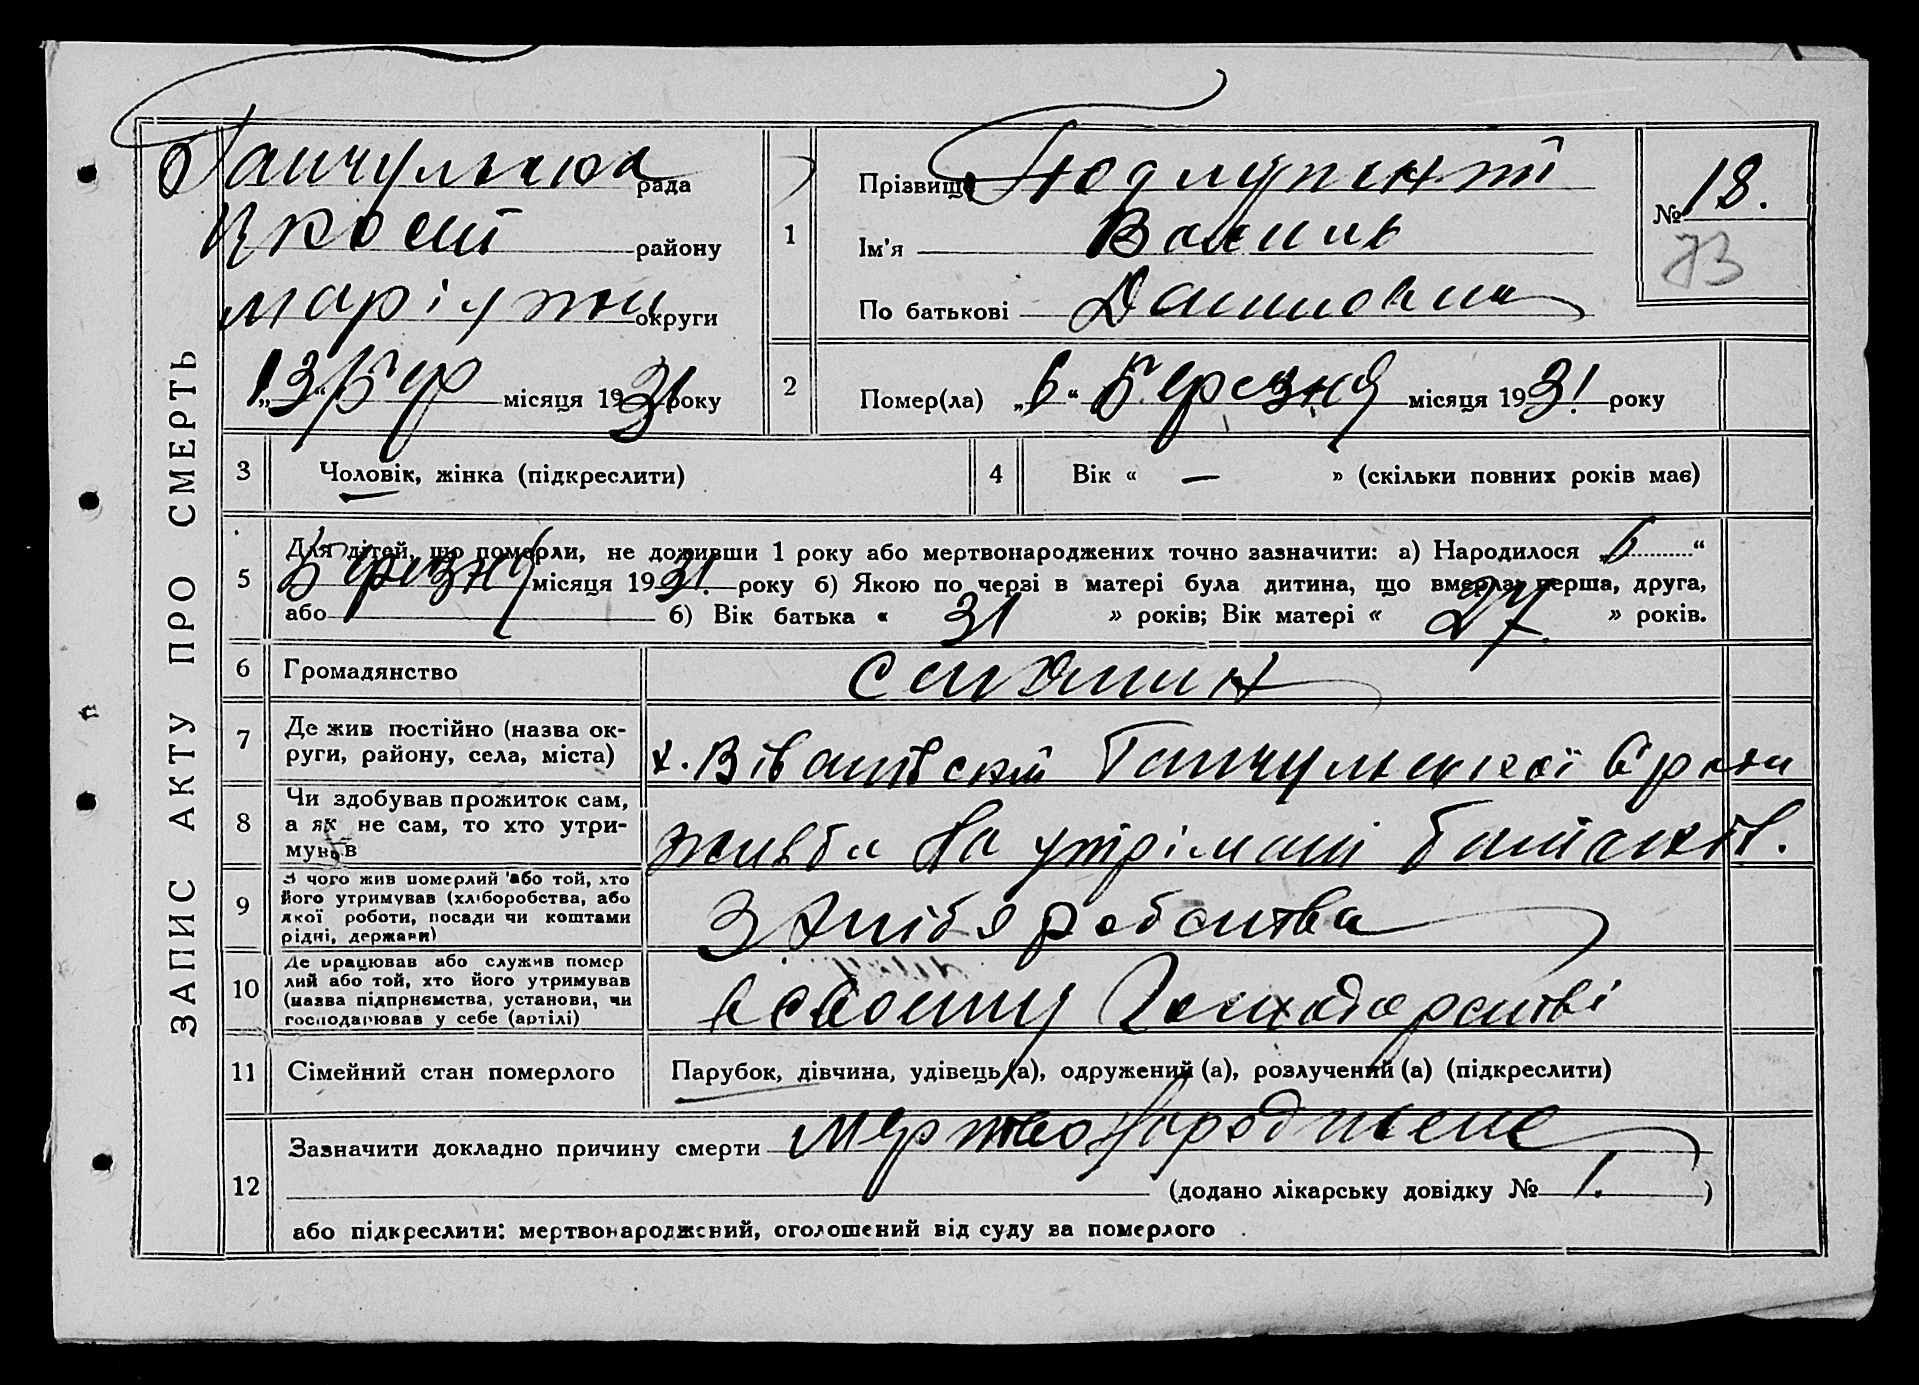 ЗАПИС АКТУ ПРО СМЕРТЬ
Гайчульська рада
району
Маріупіл округи
„13“ Бер місяця 1931 року
1
Прізвище
Ім'я Василь
По батькові Данилович
№ 18.
73
2
Помер(ла) „6“ Березня місяця 1931 року
3
Чоловік, жінка (підкреслити)
4
Вік « — » (скільки повних років має)
5
Для дітей, що померли, не доживши 1 року або мертвонароджених точно зазначити: а) Народилося „6“
Березня місяця 1931. року б) Якою по черзі в матері була дитина, що вмерла: перша, друга,
або б) Вік батька « 31 » років; Вік матері « 27 » років.
6
Громадянство
селянин
7
Де жив постійно (назва ок-
руги, району, села, міста)
х. Гайчульської с/ради
8
Чи здобував прожиток сам,
а як не сам, то хто утри-
мував
на утрімані батьків.
9
З чого жив померлий або той, хто
його утримував (хліборобства, або
якої роботи, посади чи коштами
рідні, держави)
З хліборобства
10
Де працював або служив помер
лий або той, хто його утримував
(назва підприємства, установи, чи
господарював у себе (артілі)
в своему господарстві
11
Сімейний стан померлого
Парубок, дівчина, удівець (а), одружений (а), розлучений (а) (підкреслити)
12
Зазначити докладно причину смерти мертвонароджене
(додано лікарську довідку № 1. )
або підкреслити: мертвонароджений, оголошений від суду за померлого